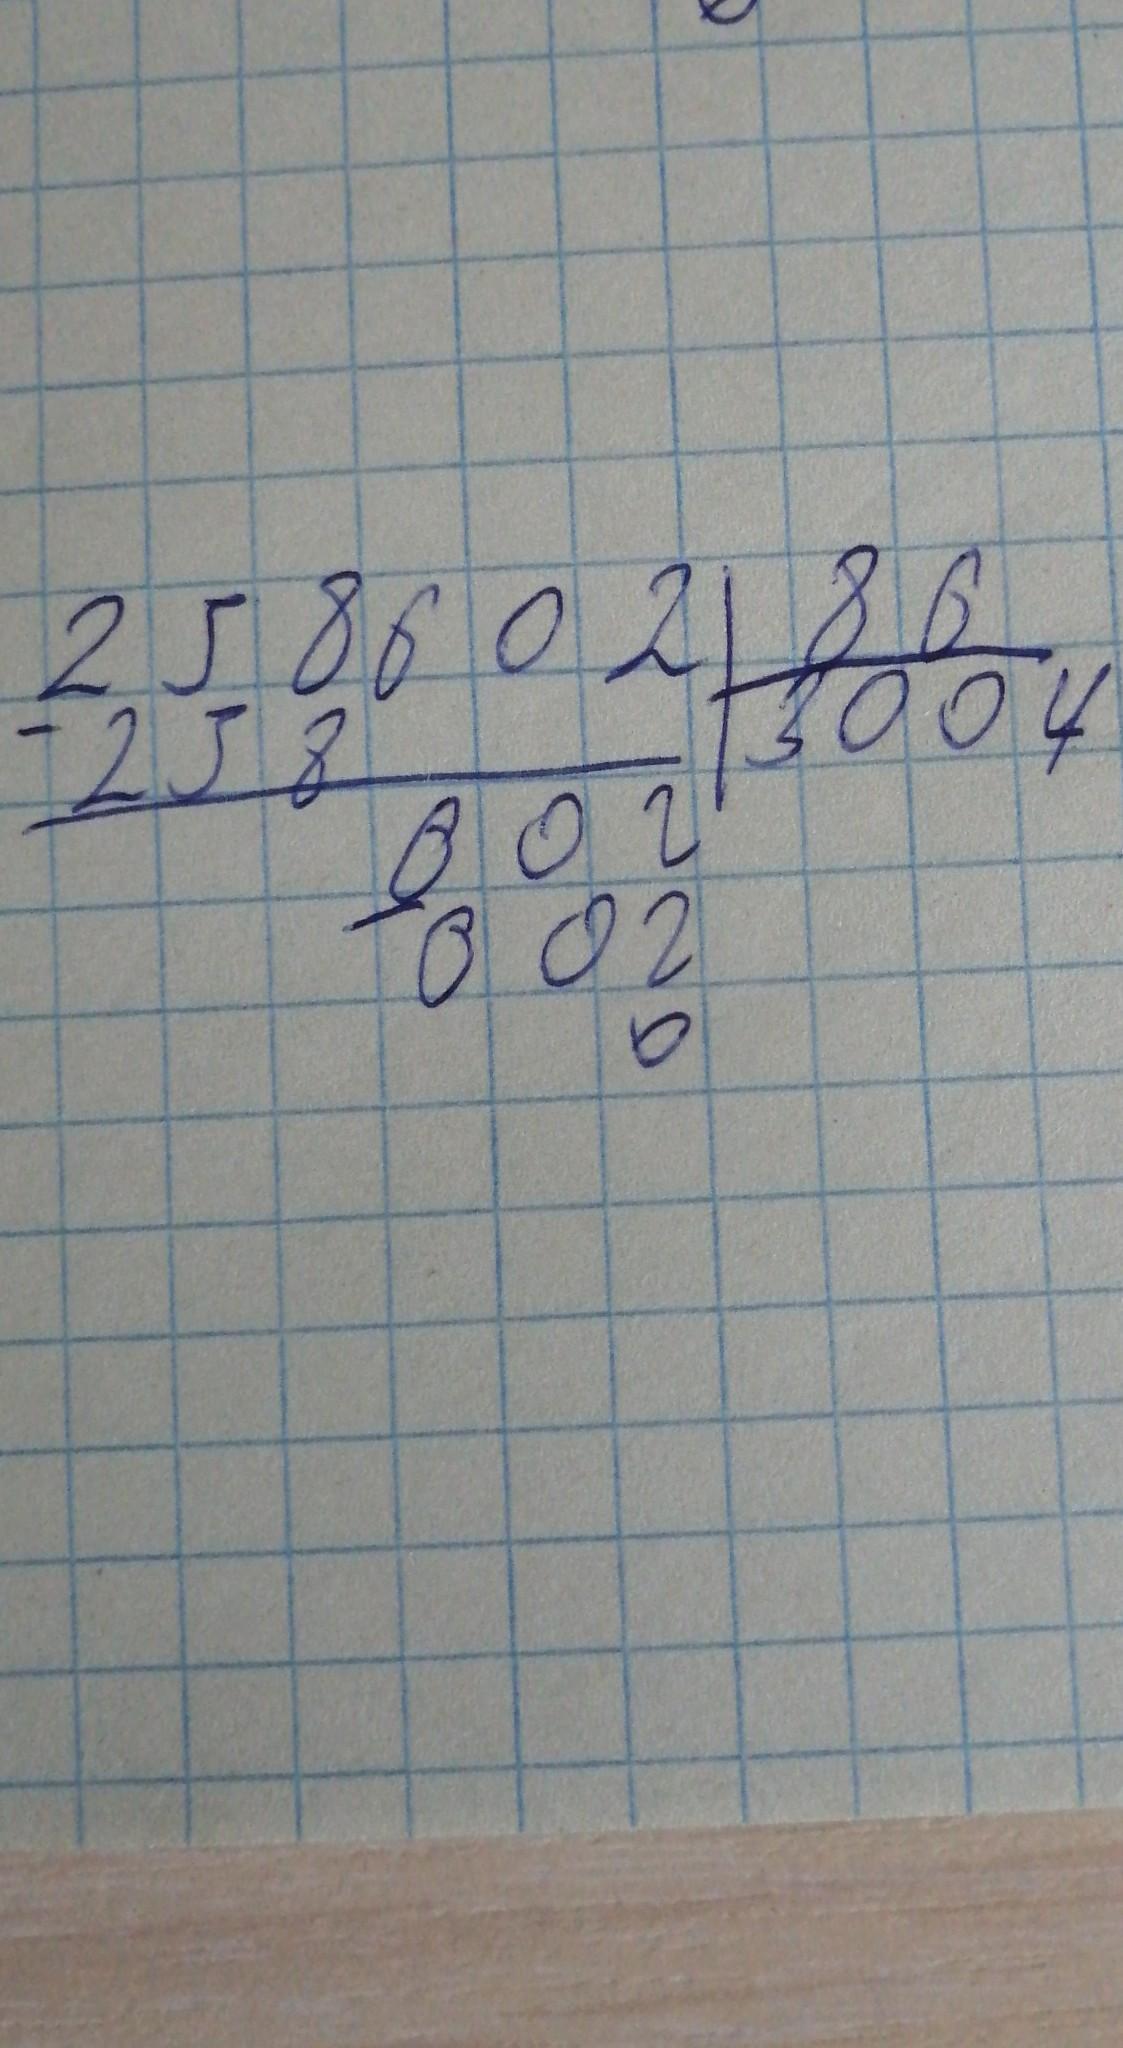 258602 | 86
- 258 3004
602
- 602
0